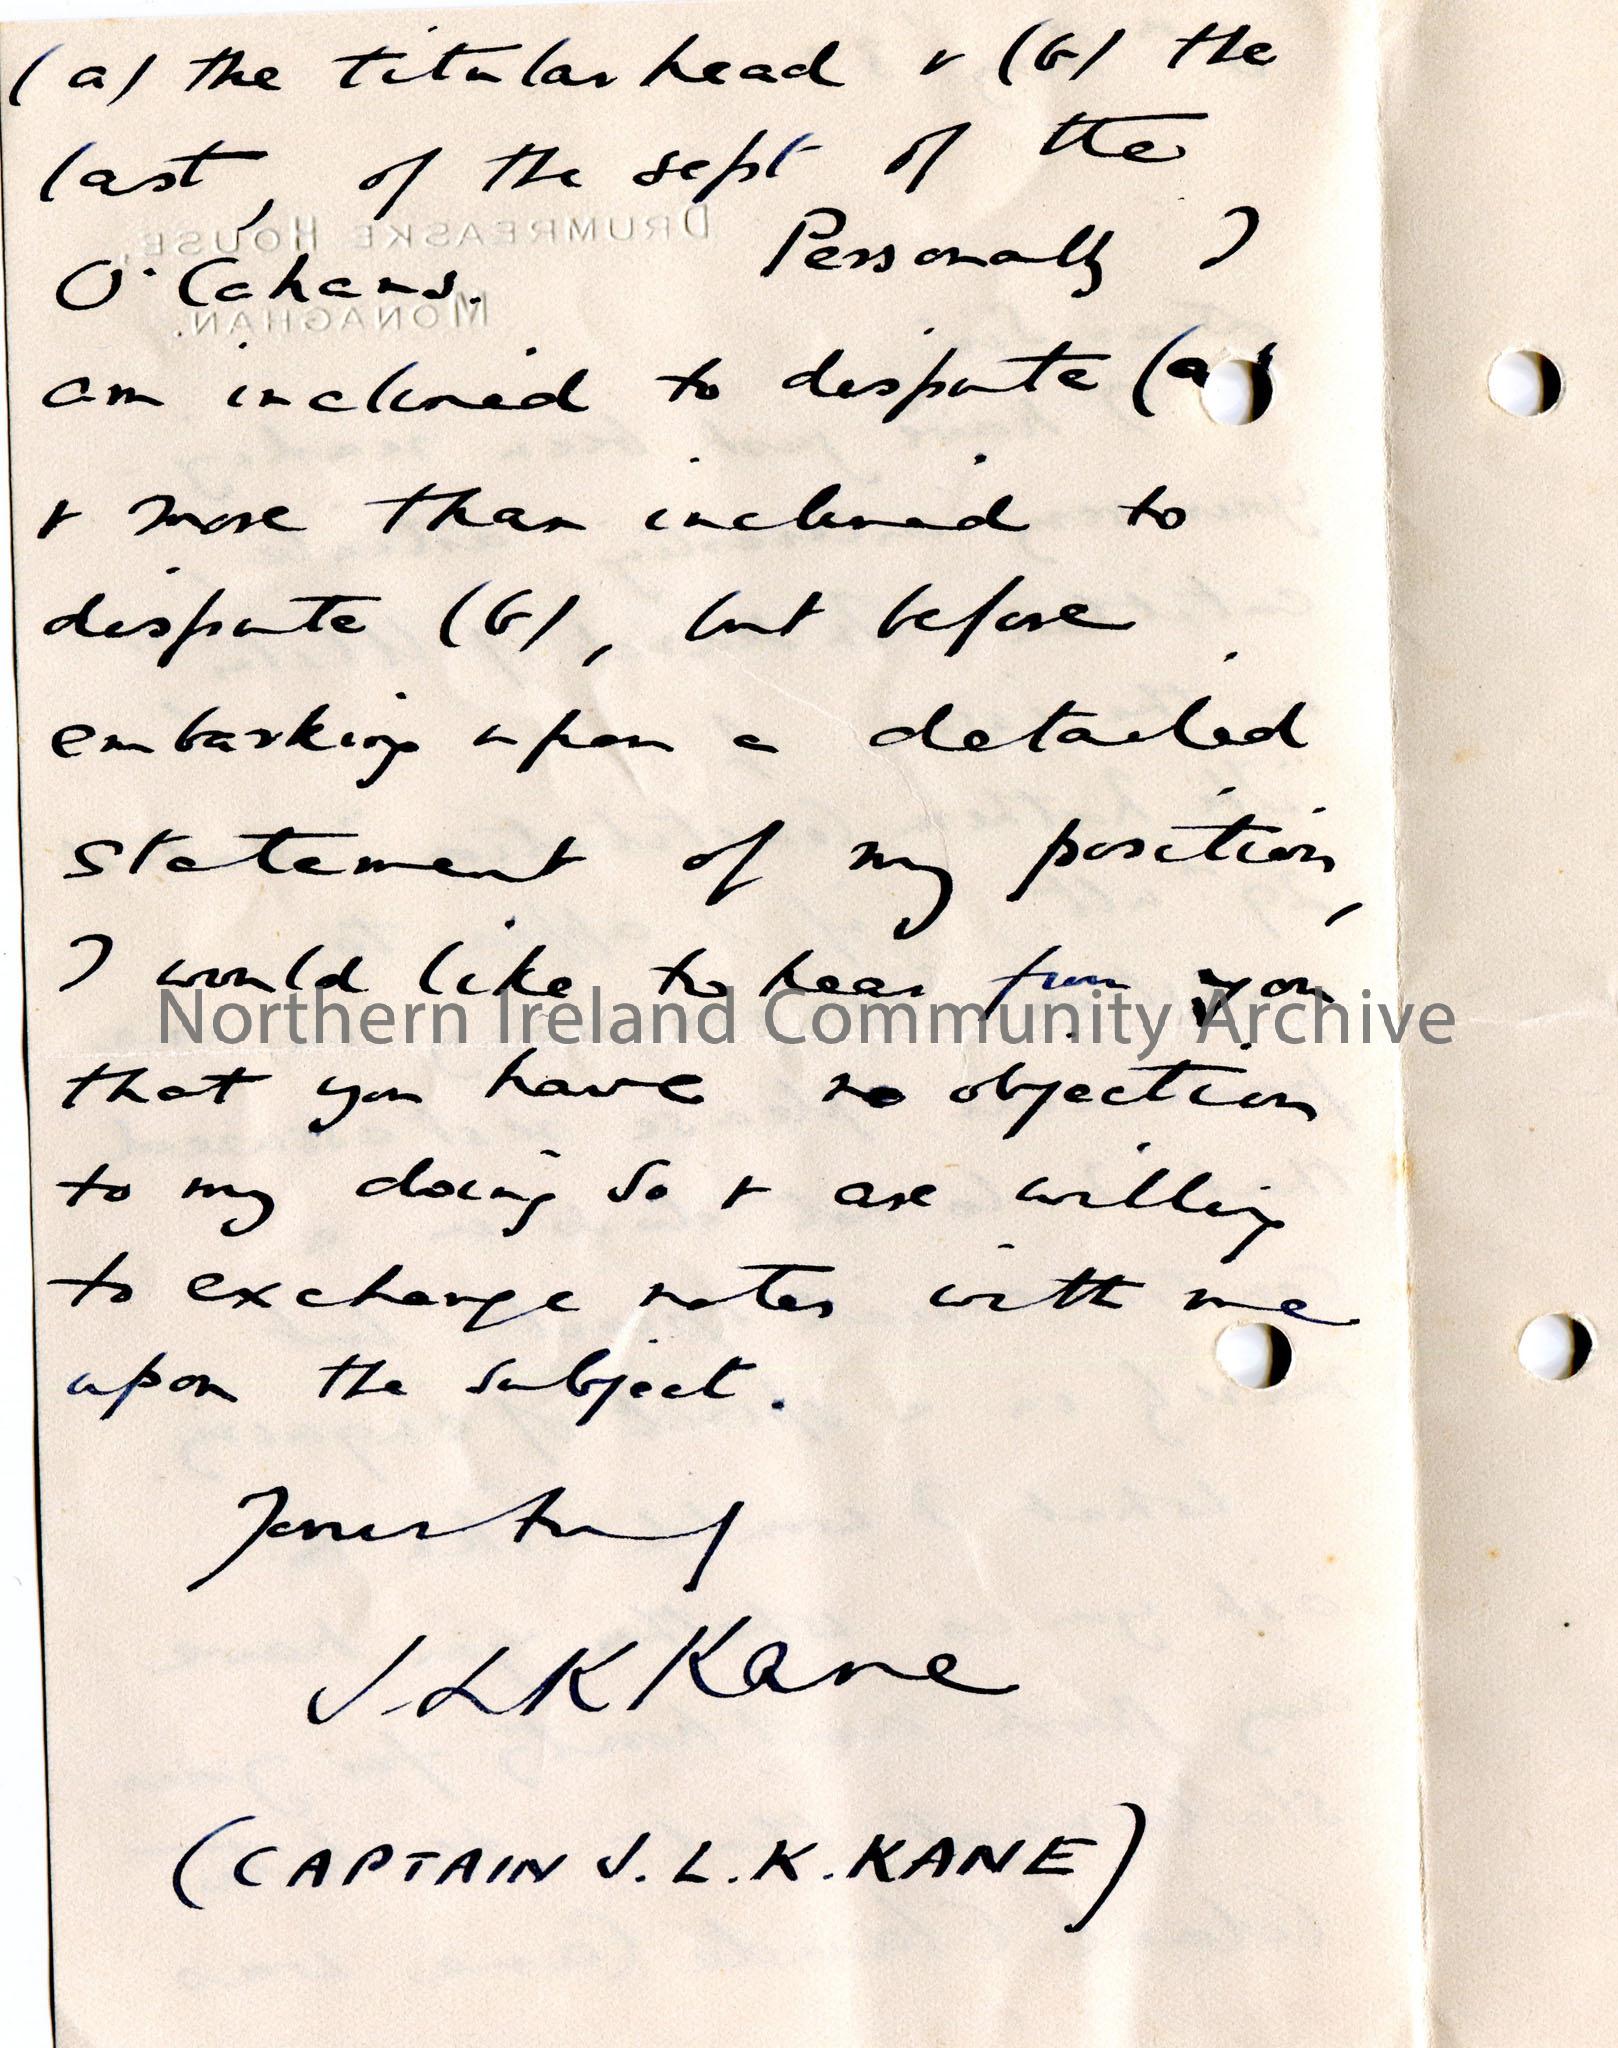 (a) the titular head & (b) the
last, of the sept of the
O'Cahans. Personally I
DRUMREASKE HOUSE,
MONAGHAN.
am inclined to dispute (a)
& more than inclined to
dispute (b), but before
embarking upon a detailed
statement of my position,
I would like to hear from you
Northern Ireland Community Archive
that you have no objection
to my doing so & are willing
to exchange notes with me
upon the subject.
Yours truly
J. L K Kane
(CAPTAIN J. L. K. KANE)